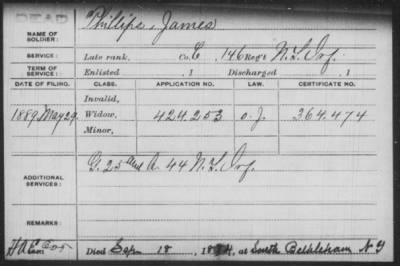 DEAD
NAME OF SOLDIER: Phillips, James
SERVICE: Late rank, Co. E, 146 Reg't N.Y. Inf.
TERM OF SERVICE: Enlisted , 1 Discharged , 1
DATE OF FILING. CLASS. APPLICATION NO. LAW. CERTIFICATE NO.
Invalid,
1889, May 29. Widow, 424.253 O.J. 364.474
Minor,
ADDITIONAL SERVICES: G. 25 and A. 44 N.Y. Inf.
REMARKS:
Died Sep 18, at South Bethlehem N Y